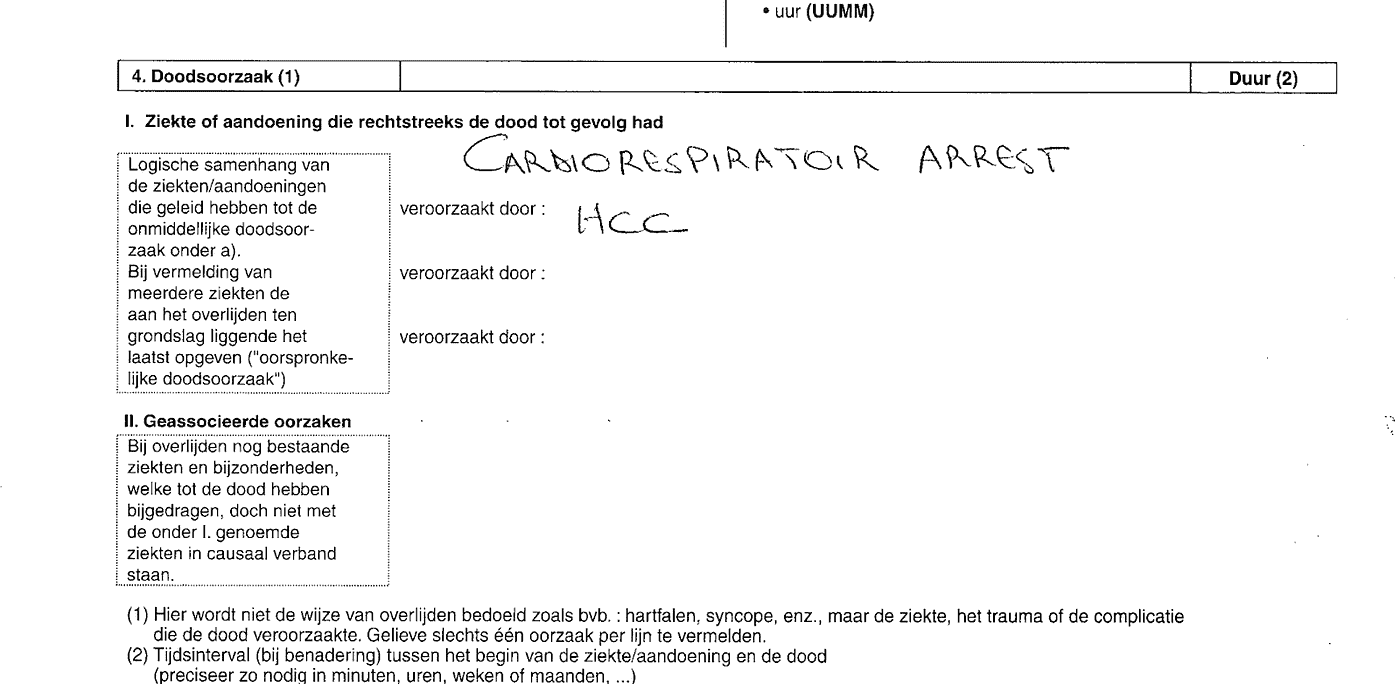 • uur (UUMM)
4. Doodsoorzaak (1) Duur (2)
I. Ziekte of aandoening die rechtstreeks de dood tot gevolg had
CARDIORESPIRATOIR ARREST
Logische samenhang van
de ziekten/aandoeningen
die geleid hebben tot de
onmiddellijke doodsoor-
zaak onder a).
Bij vermelding van
meerdere ziekten de
aan het overlijden ten
grondslag liggende het
laatst opgeven ("oorspronke-
lijke doodsoorzaak")
veroorzaakt door : HCC
veroorzaakt door :
veroorzaakt door :
II. Geassocieerde oorzaken
Bij overlijden nog bestaande
ziekten en bijzonderheden,
welke tot de dood hebben
bijgedragen, doch niet met
de onder I. genoemde
ziekten in causaal verband
staan.
(1) Hier wordt niet de wijze van overlijden bedoeld zoals bvb. : hartfalen, syncope, enz., maar de ziekte, het trauma of de complicatie
die de dood veroorzaakte. Gelieve slechts één oorzaak per lijn te vermelden.
(2) Tijdsinterval (bij benadering) tussen het begin van de ziekte/aandoening en de dood
(preciseer zo nodig in minuten, uren, weken of maanden, ...)